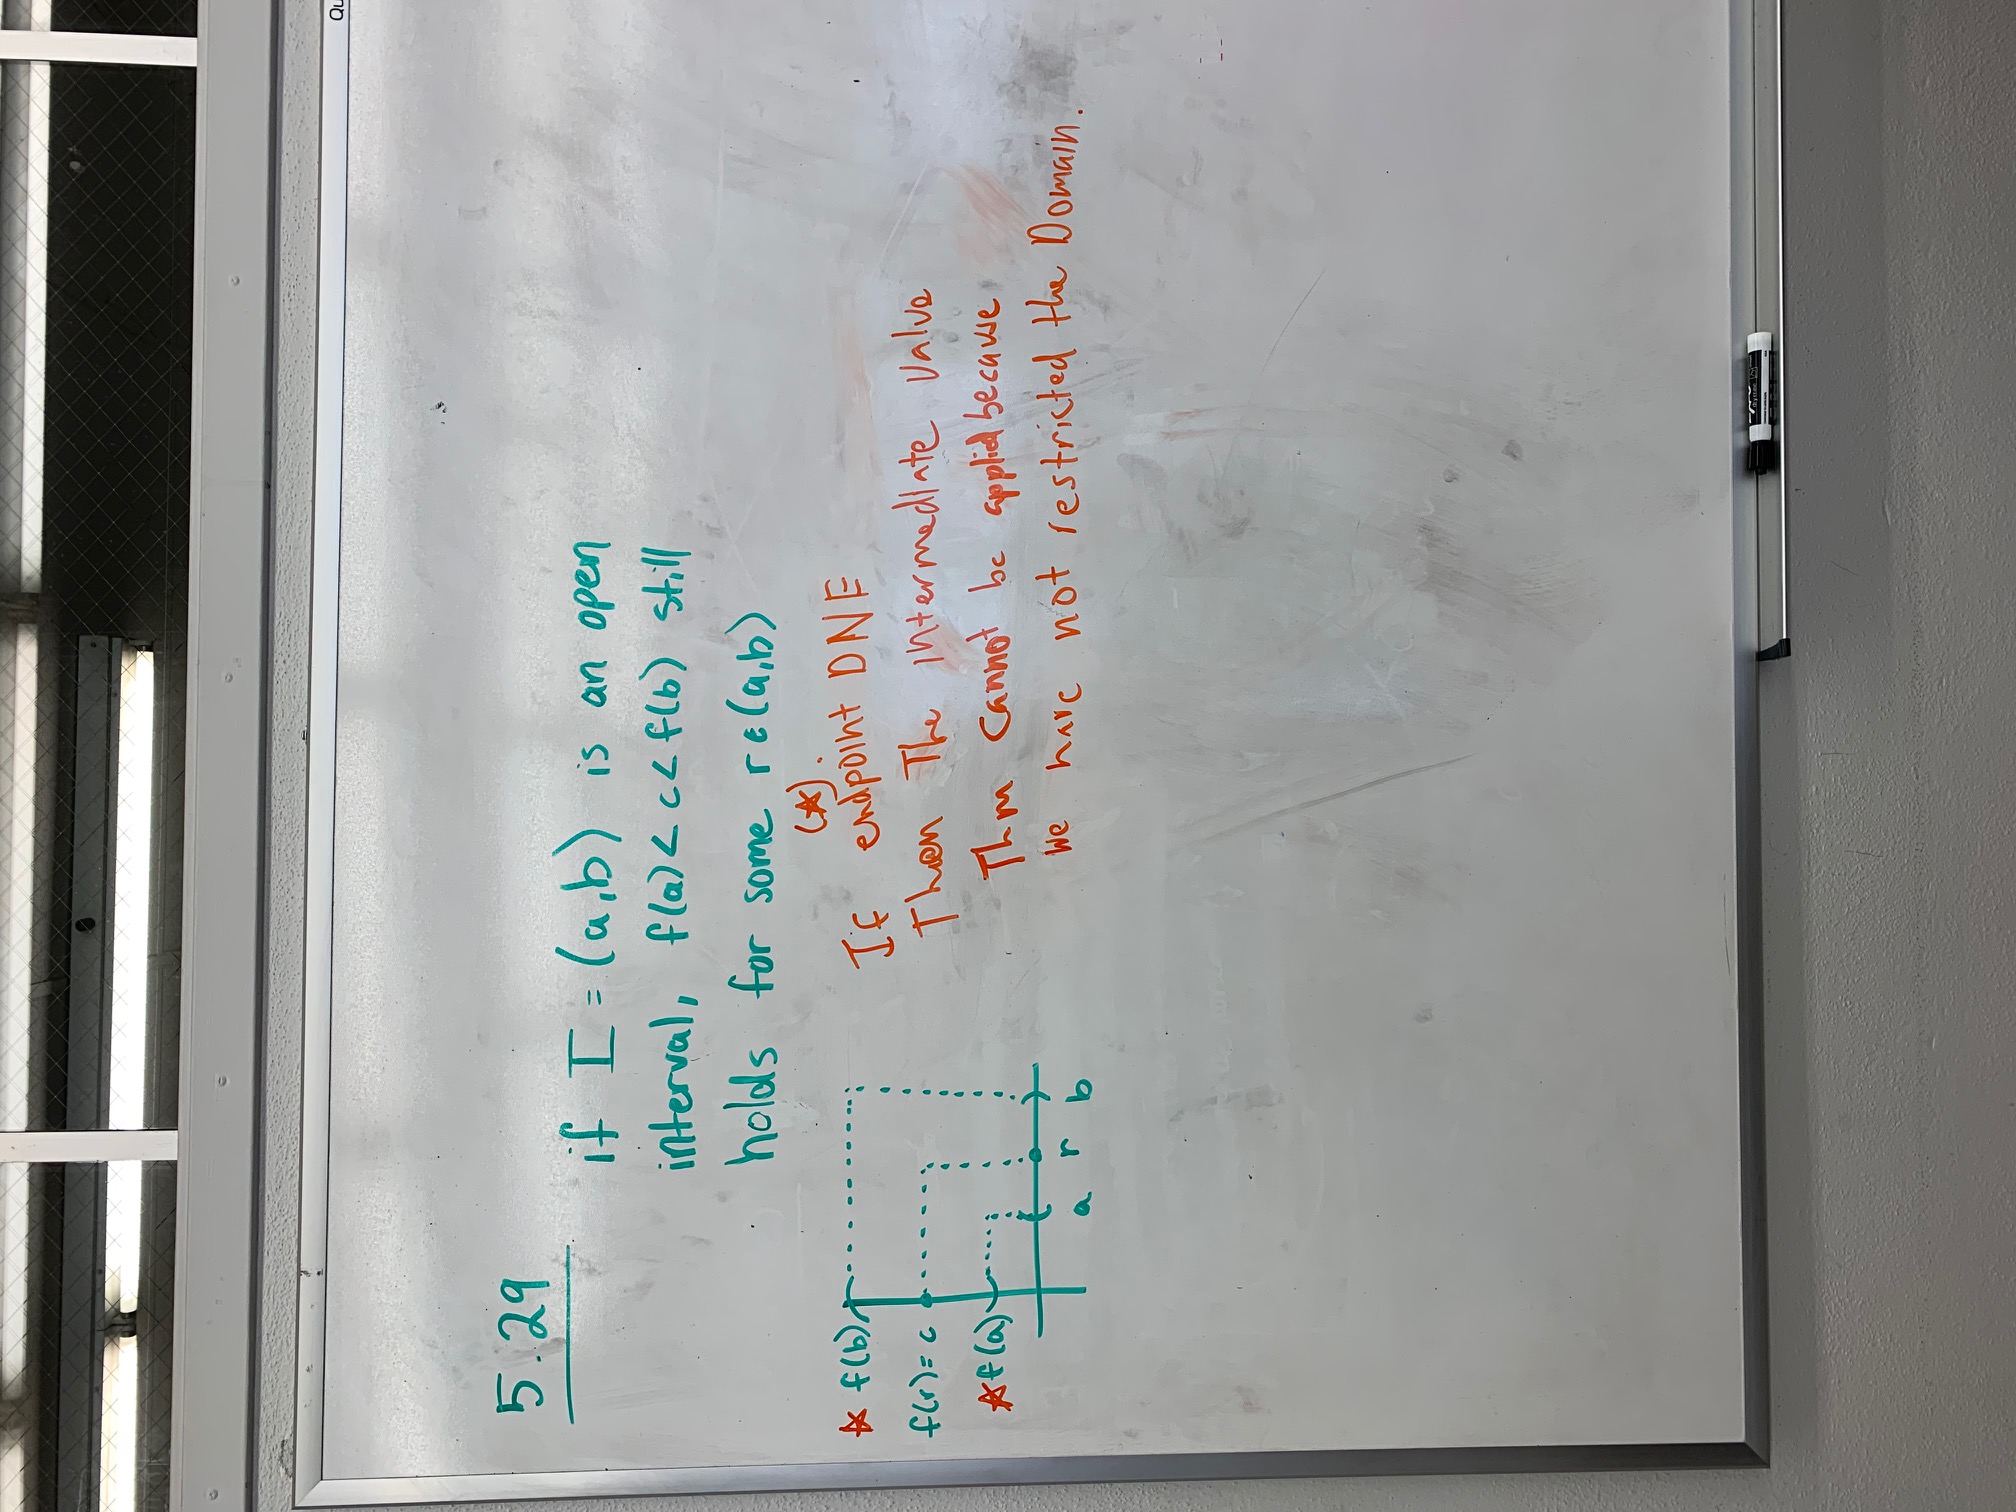 Qu
5.29
if I = (a,b) is an open
interval, f(a) < c < f(b) still
holds for some r ∈ (a,b)
(☆).
☆ f(b)
f(r) = c
☆ f(a)
a r b
If endpoint DNE
Then The Intermediate Value
Thm Cannot be applied because
We have not restricted the Domain.